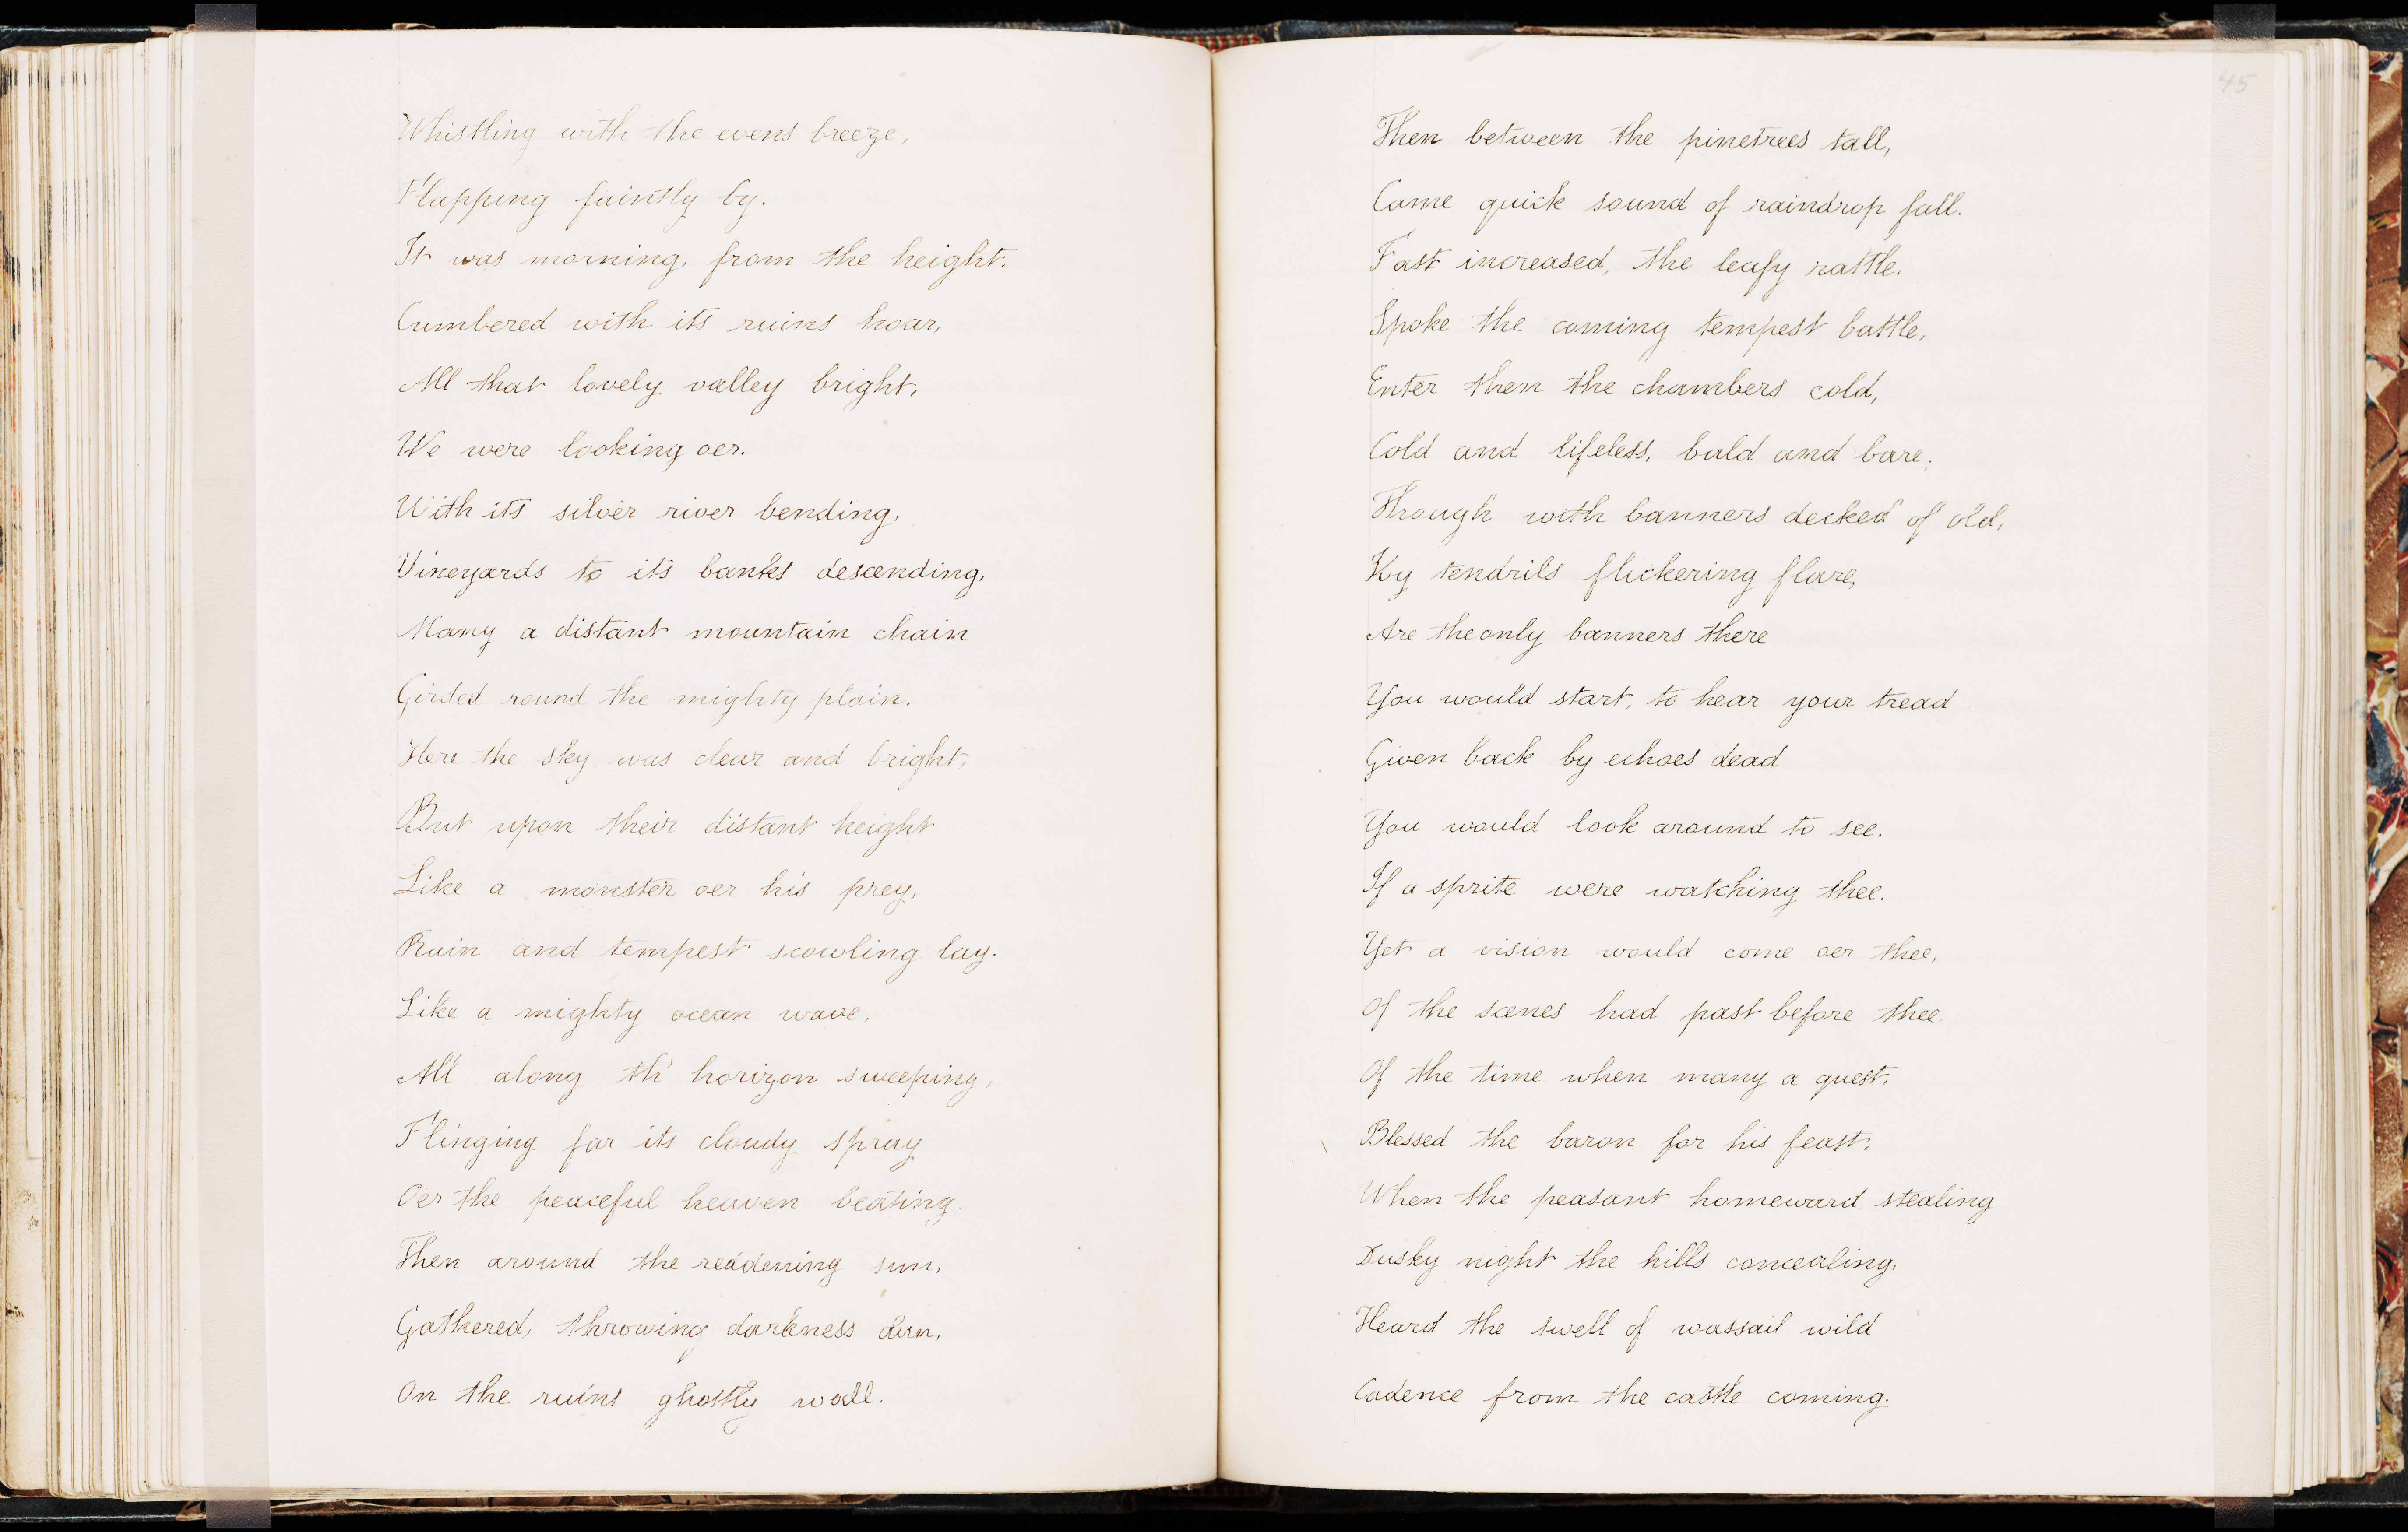 Whistling with the evens breeze,
Flapping faintly by.
It was morning, from the height.
Cumbered with its ruins hoar,
All that lovely valley bright,
We were looking oer.
With its silver river bending,
Vineyards to its banks descending,
Many a distant mountain chain
Girded round the mighty plain.
Here the sky was clear and bright;
But upon their distant height
Like a monster oer his prey,
Rain and tempest scowling lay.
Like a mighty ocean wave,
All along th' horizon sweeping,
Flinging far its cloudy spray
Oer the peaceful heaven beating.
Then around the reddening sun,
Gathered, throwing darkness dun,
On the ruins ghostly wall.
45
Then between the pinetrees tall,
Came quick sound of raindrop fall.
Fast increased, the leafy rattle,
Spoke the coming tempest battle,
Enter then the chambers cold,
Cold and lifeless, bald and bare;
Though with banners decked of old,
Ivy tendrils flickering flare,
Are the only banners there
You would start, to hear your tread
Given back by echoes dead
You would look around to see.
If a sprite were watching thee.
Yet a vision would come oer thee,
Of the scenes had past before thee
Of the time when many a guest,
Blessed the baron for his feast;
When the peasant homeward stealing
Dusky night the hills concealing,
Heard the swell of wassail wild
Cadence from the castle coming.